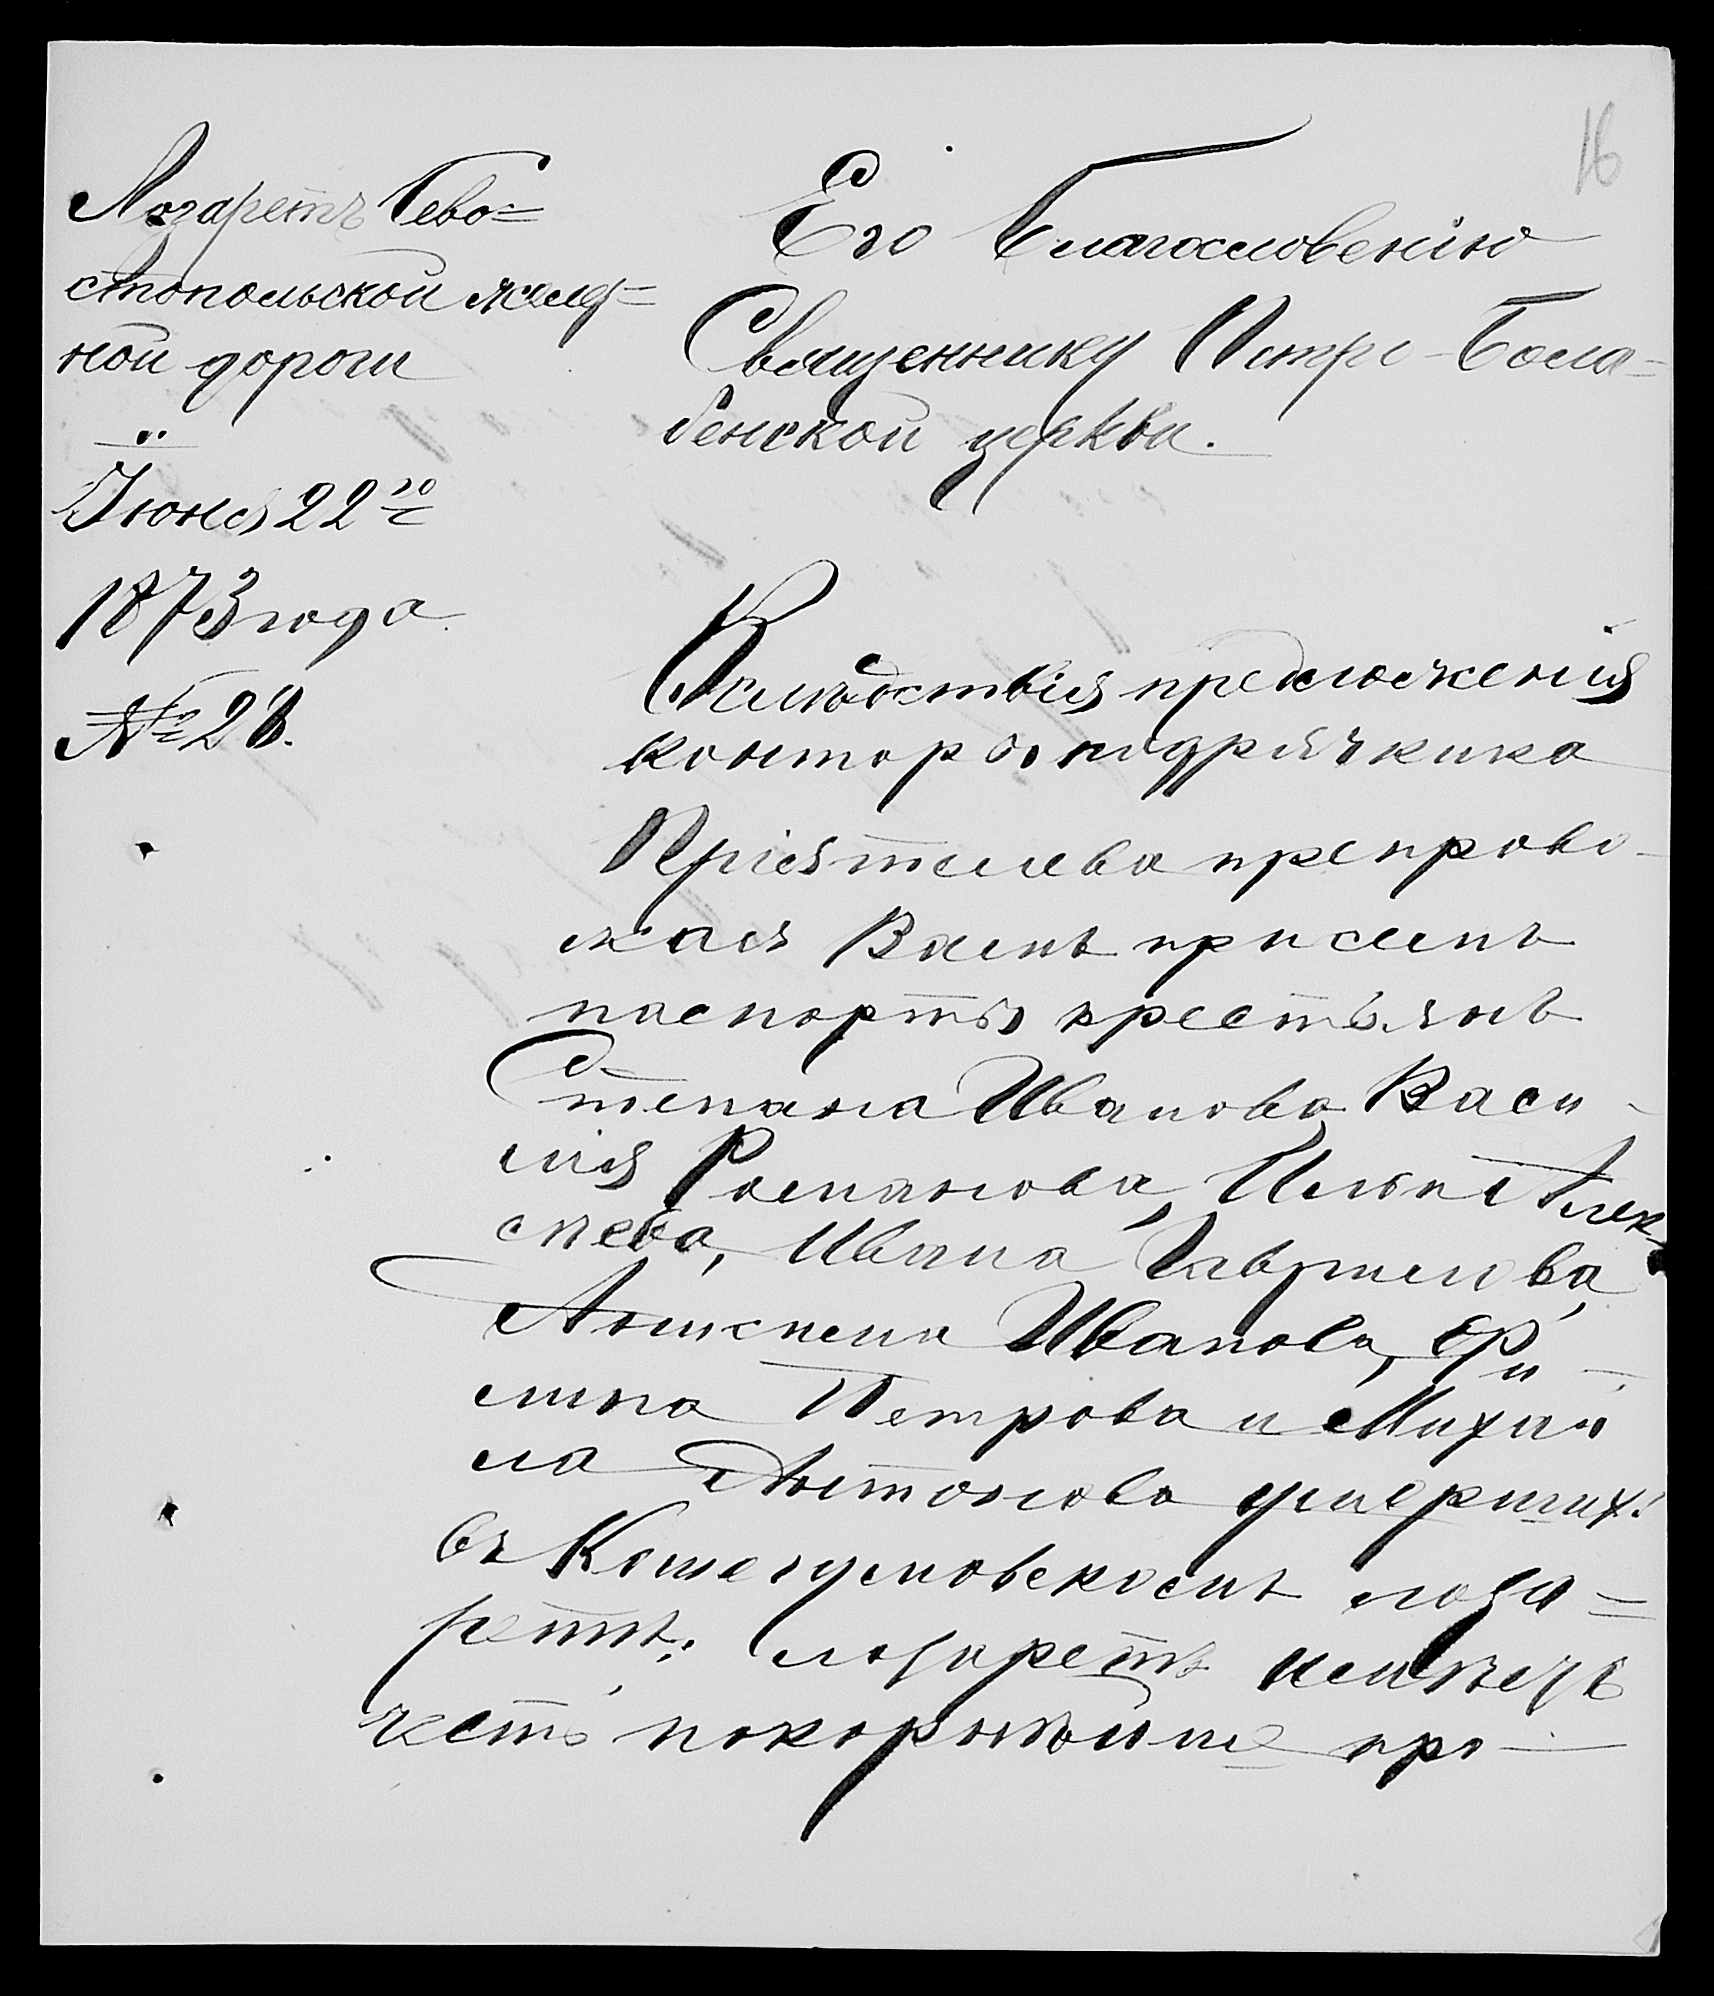 16
Лозаретъ Сево=
стопольской желѣз=
ной дороги
Іюня 22го
1873 года
№ 28.
Его Благословенію
Священнику Петро-Бала=
бенской церкви.
Вслѣдствія предложенія
конторы подрячика
Пріятелева препрово-
жая Вамъ при семъ
паспорты крестьянъ
Степана Иванова, Васи-
лія Романова, Ильи Алек-
сѣева, Ивана Гаврилова,
Алексѣя Иванова, Фи-
липа Петрова и Михаи
ла Антонова умершихъ
въ Кошегумовскомъ лоза=
ретѣ; лозаретъ имѣетъ
честь покорнѣйше про-